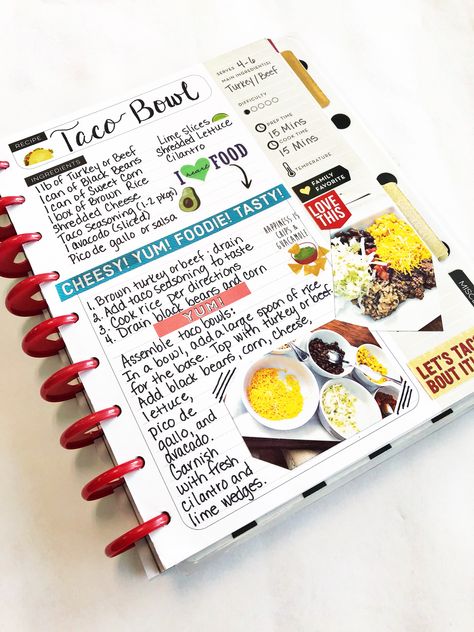 RECIPE
Taco Bowl
INGREDIENTS
1 lb of Turkey or Beef
1 can of Black Beans
1 can of Sweet Corn
1 box of Brown Rice
Shredded Cheese
Taco Seasoning (1-2 pkgs)
1 avocado (sliced)
Pico de gallo or salsa
Lime slices
Shredded Lettuce
Cilantro
I heart FOOD
CHEESY! YUM! FOODIE! TASTY!
1. Brown turkey or beef; drain
2. Add taco seasoning to taste
3. Cook rice per directions
4. Drain black beans and corn
YUM!
Assemble taco bowls:
In a bowl, add a large spoon of rice
for the base. Top with turkey or beef.
Add black beans, corn, cheese,
lettuce,
pico de
gallo, and
avacado.
Garnish
with fresh
cilantro and
lime wedges.
HAPPINESS IS
CHIPS &
GUACAMOLE
SERVES 4-6
MAIN INGREDIENT(S)
Turkey/Beef
DIFFICULTY
PREP TIME
15 Mins
COOK TIME
15 Mins
TEMPERATURE
FAMILY
FAVORITE
LOVE
THIS
LET'S TACO
BOUT IT!